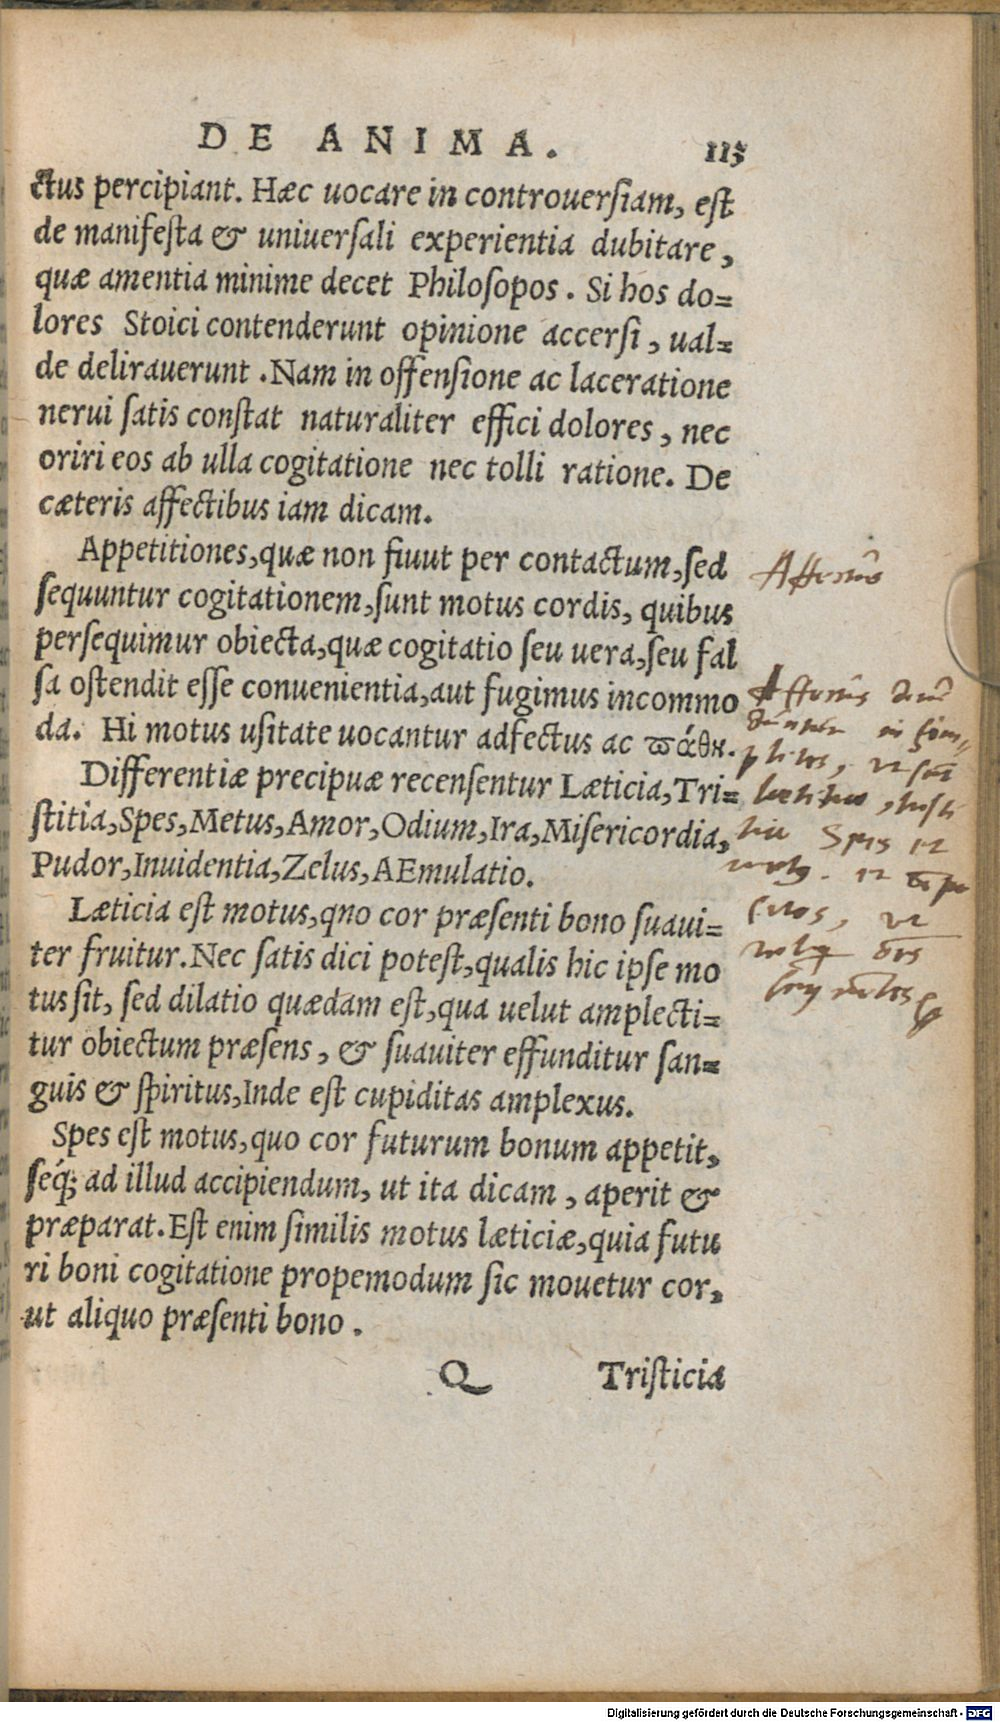 DE ANIMA. 115
ctus percipiant. Hæc uocare in controuersiam, est
de manifesta & uniuersali experientia dubitare,
quæ amentia minime decet Philosopos. Si hos do=
lores Stoici contenderunt opinione accersi, ual=
de delirauerunt. Nam in offensione ac laceratione
nerui satis constat naturaliter effici dolores, nec
oriri eos ab ulla cogitatione nec tolli ratione. De
cæteris affectibus iam dicam.
Appetitiones, quæ non fiuut per contactum, sed
sequuntur cogitationem, sunt motus cordis, quibus
persequimur obiecta, quæ cogitatio seu uera, seu fal
sa ostendit esse conuenientia, aut fugimus incommo
da. Hi motus usitate uocantur adfectus ac πάθη.
Differentiæ precipuæ recensentur Læticia, Tri=
stitia, Spes, Metus, Amor, Odium, Ira, Misericordia,
Pudor, Inuidentia, Zelus, AEmulatio.
Læticia est motus, qno cor præsenti bono suaui=
ter fruitur. Nec satis dici potest, qualis hic ipse mo
tus sit, sed dilatio quædam est, qua uelut amplecti=
tur obiectum præsens, & suauiter effunditur san=
guis & spiritus, Inde est cupiditas amplexus.
Spes est motus, quo cor futurum bonum appetit,
seq́; ad illud accipiendum, ut ita dicam, aperit &
præparat. Est enim similis motus læticiæ, quia futu
ri boni cogitatione propemodum sic mouetur cor,
ut aliquo præsenti bono.
Q Tristicia
Affectus
Affectus
Spes
Digitalisierung gefördert durch die Deutsche Forschungsgemeinschaft - DFG